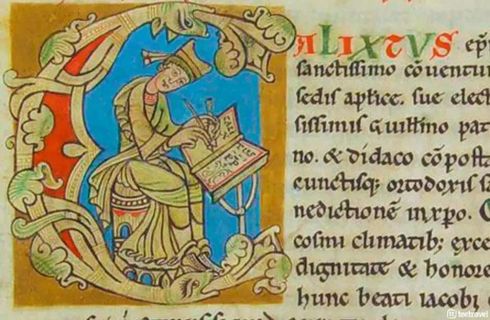 CALIXTVS ep̄
sanctissimo cōuentui
sedis aplice. sue elect
issimis Guillmo pat
no. & didaco cōposta
cunctisq; ortodoxis
nedictionē in xp̄o.
cosmi climatib; exce
dignitate & honore
hunc beati iacobi
teetravel